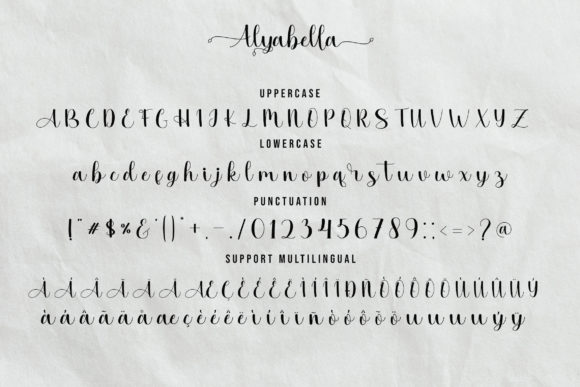 Alyabella
UPPERCASE
A B C D E F G H I J K L M N O P Q R S T U V W X Y Z
LOWERCASE
a b c d e f g h i j k l m n o p q r s t u v w x y z
PUNCTUATION
! " # $ % & ' ( ) * + , - . / 0 1 2 3 4 5 6 7 8 9 : ; < = > ? @
SUPPORT MULTILINGUAL
À Á Â Ã Ä Å Æ Ç È É Ê Ë Ì Í Î Ï Ð Ñ Ò Ó Ô Õ Ö Ù Ú Û Ü Ý
à á â ã ä å æ ç è é ê ë ì í î ï ñ ò ó ô õ ö ù ú û ü ý ÿ